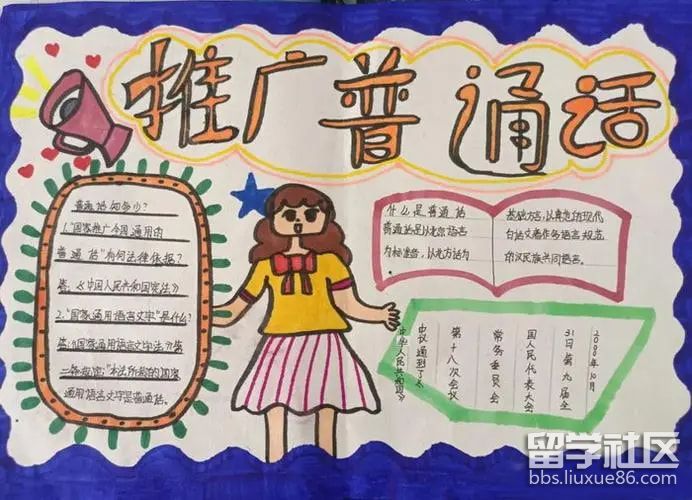 推广普通话
普通话知多少?
1."国家推广全国通用的
普通话"有何法律依据?
答:《中国人民共和国宪法》
2."国家通用语言文字"是什么?
答:《国家通用语言文字法》第
二条规定:"本法所称的国家
通用语言文字是普通话。
什么是普通话
普通话是以北京语言
为标准音,以北方话为
基础方言,以典范的现代
白话文著作为语言规范
的汉民族共同语言。
2000年10月
31日第九届全
国人民代表大会
常务委员会
第十八次会议
中华人民共和国》
留学社区
bbs.liuxue86.com